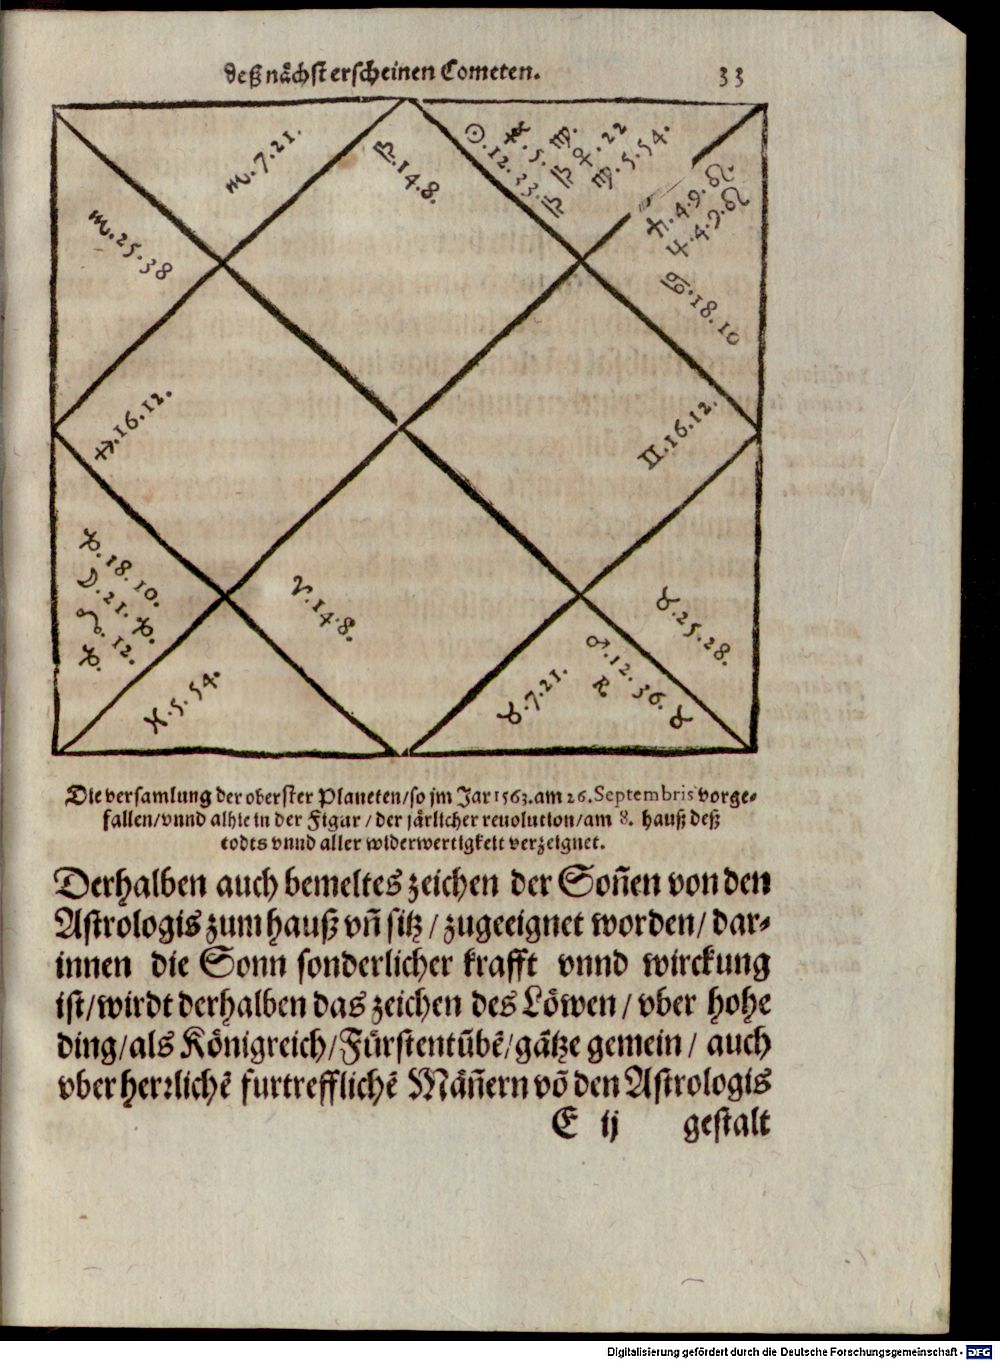 deß nåchst erscheinen Cometen. 33
♏.7.21.
♎.14.8.
☉.12.33.♎
☿.5.♎
♍. ♀.22
♍.5.54.
♄.4.9.♌.
♃.4.9.♌
♏.25.38
♋.18.10
♐.16.12.
II.16.12.
♑.18.10.
☽.21.♑.
☊.12.
♑.
♈.14.8.
♉.25.28.
♂.12.36.♉
R.
♓.5.54.
♉.7.21.
Die versamlung der oberster Planeten/so jm Jar 1563.am 26.Septembris vorge-
fallen/vnnd alhie in der Figur/der jårlicher reuolution/am 8. hauß deß
todts vnnd aller widerwertigkeit verzeignet.
Derhalben auch bemeltes zeichen der Soñen von den
Astrologis zum hauß vñ sitz/zugeeignet worden/dar-
innen die Sonn sonderlicher krafft vnnd wirckung
ist/wirdt derhalben das zeichen des Lőwen/vber hohe
ding/als Kőnigreich/Fürstentůbē/gåtze gemein/auch
vber herrlichē furtrefflichē Måñern võ den Astrologis
E ij gestalt
Digitalisierung gefördert durch die Deutsche Forschungsgemeinschaft - DFG